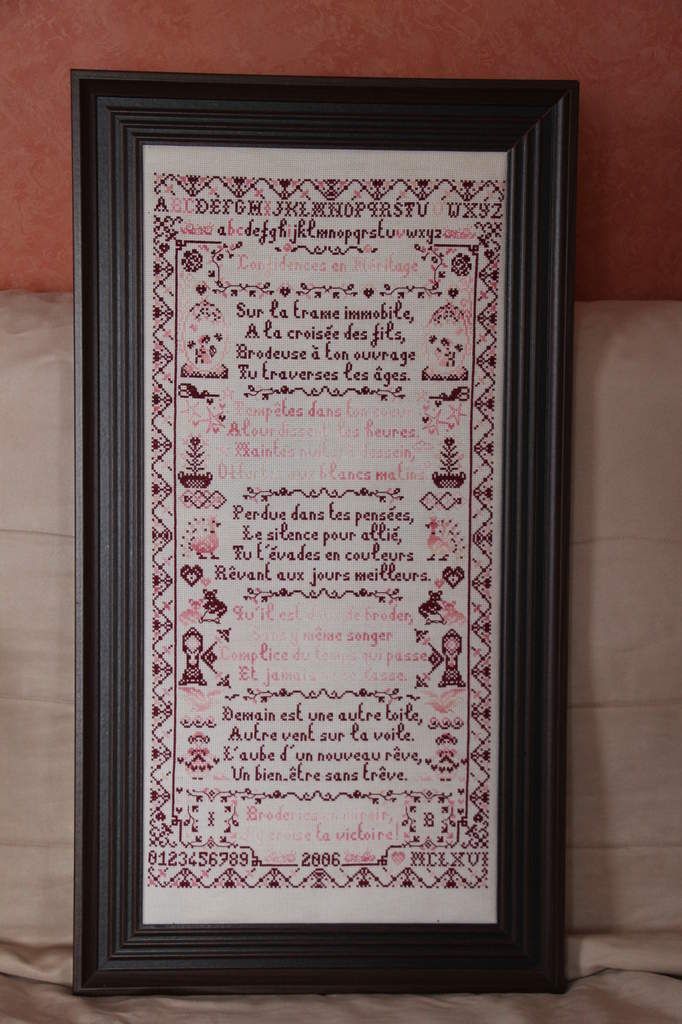 ABCDEFGHIJKLMNOPQRSTU VWXYZ
abcdefghijklmnopqrstuvwxyz
Confidences en Héritage
Sur la trame immobile,
A la croisée des fils,
Brodeuse à ton ouvrage
Tu traverses les âges.
Tempêtes dans ton coeur
Alourdissent les heures.
Maintes nuits à dessein,
aux blancs matins.
Perdue dans tes pensées,
Le silence pour allié,
Tu t'évades en couleurs
Rêvant aux jours meilleurs.
Qu'il est doux de broder,
Sans y même songer
Complice du temps qui passe
Et jamais ne se lasse.
Demain est une autre toile,
Autre vent sur la voile.
L'aube d'un nouveau rêve,
Un bien-être sans trêve.
Broderies en miroir,
I B
croise ta victoire!
0123456789 2006 MCLXVI